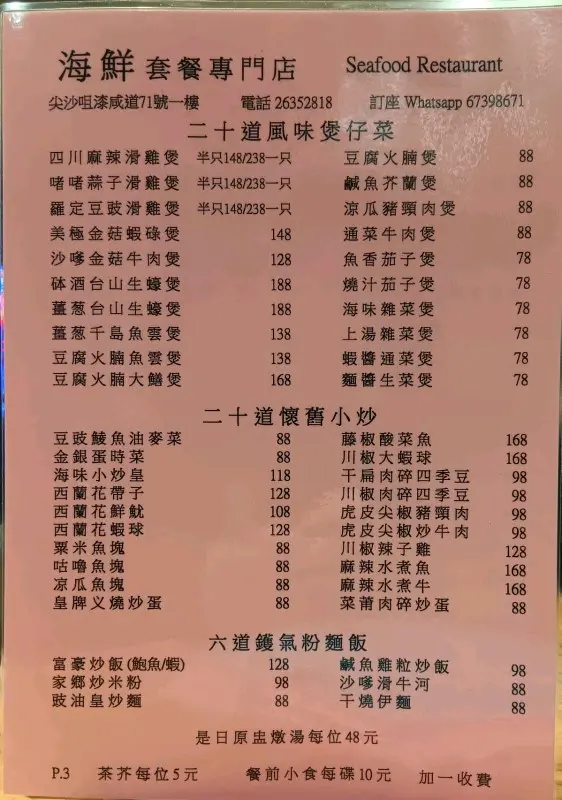 海鮮套餐專門店 Seafood Restaurant
尖沙咀漆咸道71號一樓 電話 26352818 訂座 Whatsapp 67398671
二十道風味煲仔菜
四川麻辣滑雞煲 半只148/238一只 豆腐火腩煲 88
啫啫蒜子滑雞煲 半只148/238一只 鹹魚芥蘭煲 88
羅定豆豉滑雞煲 半只148/238一只 涼瓜豬頸肉煲 88
美極金菇蝦碌煲 148 通菜牛肉煲 88
沙嗲金菇牛肉煲 128 魚香茄子煲 78
砵酒台山生蠔煲 188 燒汁茄子煲 78
薑葱台山生蠔煲 188 海味雜菜煲 78
薑葱千島魚雲煲 138 上湯雜菜煲 78
豆腐火腩魚雲煲 138 蝦醬通菜煲 78
豆腐火腩大鱔煲 168 麵醬生菜煲 78
二十道懷舊小炒
豆豉鯪魚油麥菜 88 藤椒酸菜魚 168
金銀蛋時菜 88 川椒大蝦球 168
海味小炒皇 118 干扁肉碎四季豆 98
西蘭花帶子 128 川椒肉碎四季豆 98
西蘭花鮮魷 108 虎皮尖椒豬頸肉 98
西蘭花蝦球 128 虎皮尖椒炒牛肉 98
粟米魚塊 88 川椒辣子雞 128
咕嚕魚塊 88 麻辣水煮魚 168
凉瓜魚塊 88 麻辣水煮牛 168
皇牌义燒炒蛋 88 菜莆肉碎炒蛋 88
六道鑊氣粉麵飯
富豪炒飯(鮑魚/蝦) 128 鹹魚雞粒炒飯 98
家鄉炒米粉 98 沙嗲滑牛河 88
豉油皇炒麵 88 干燒伊麵 88
是日原盅燉湯每位48元
P.3 茶芥每位5元 餐前小食每碟10元 加一收費